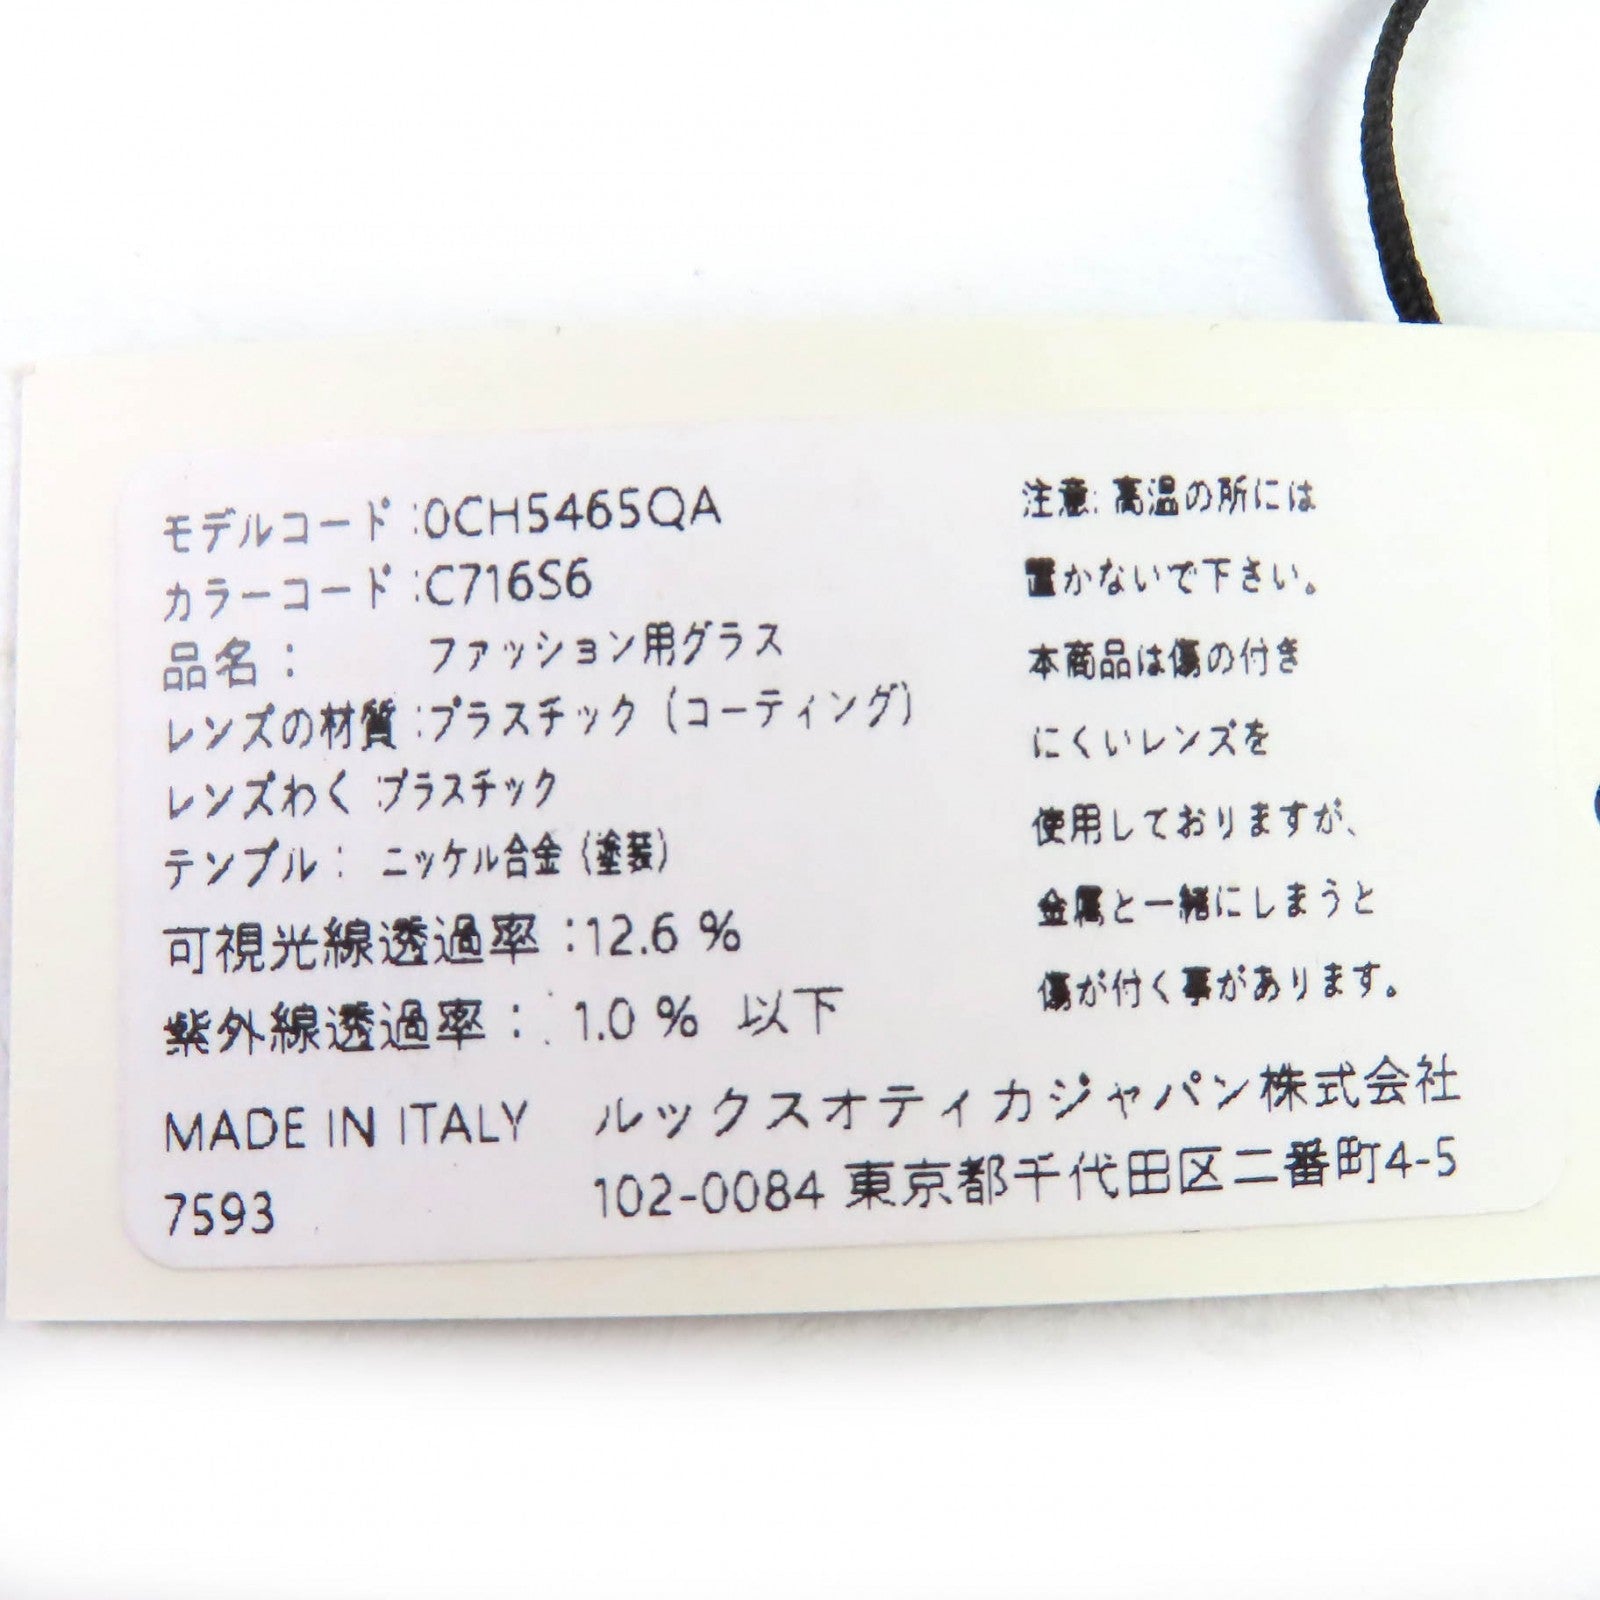 モデルコード:0CH5465QA
カラーコード:C716S6
品名: ファッション用グラス
レンズの材質:プラスチック (コーティング)
レンズわく :プラスチック
テンプル: ニッケル合金 (塗装)
可視光線透過率 :12.6 %
紫外線透過率: : 1.0 % 以下
MADE IN ITALY
7593
注意: 高温の所には
置かないで下さい。
本商品は傷の付き
にくいレンズを
使用しておりますが、
金属と一緒にしまうと
傷が付く事があります。
ルックスオティカジャパン株式会社
102-0084 東京都千代田区二番町4-5